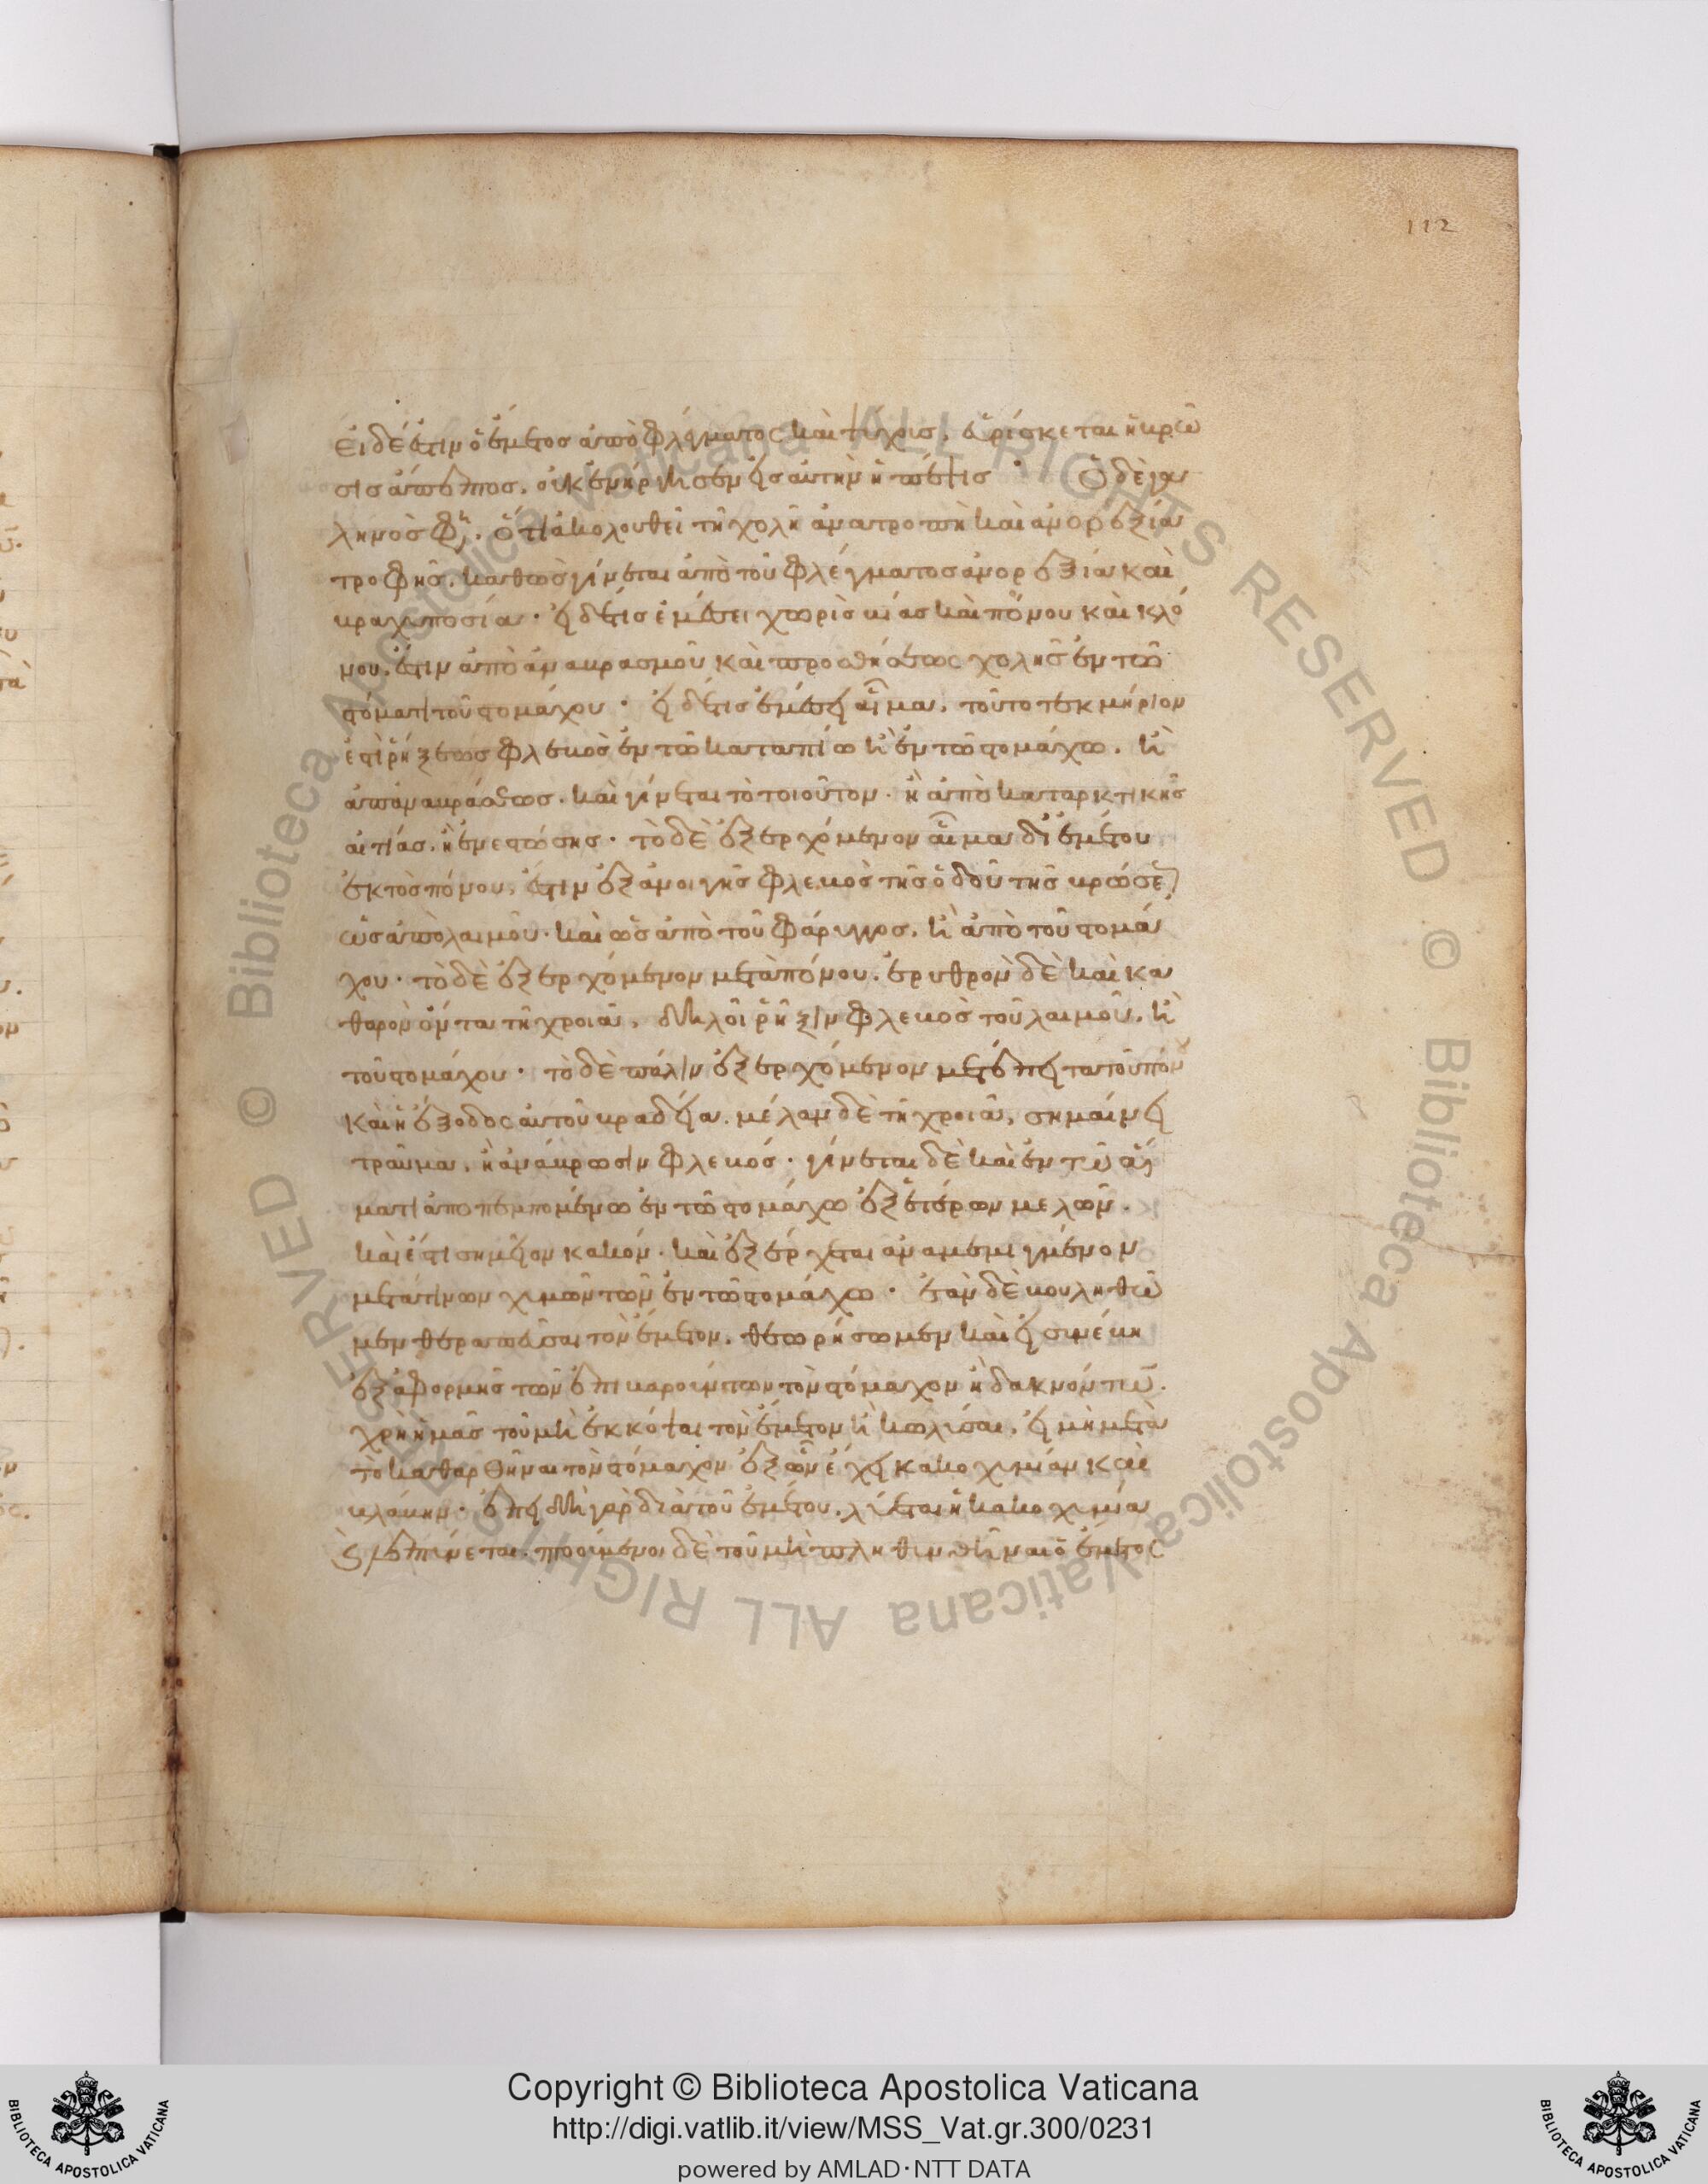 112
εἰ δέ ἐστιν ὁ ἔμετος ἀπὸ φλέγματος καὶ ψύχρις, εὑρίσκεται ἡ βρῶ
σις ἄπεπτος, οὐκ ἐνήργησεν εἰς αὐτὴν ἡ πέψις · Ὁ δὲ γα
ληνὸς φη, ὅτι ἀκολουθεῖ τῇ χολῇ ἀνατροπὴ καὶ ἀνορεξία
τροφῆς, καθὼς γίνεται ἀπὸ τοῦ φλέγματος ἀνορεξία καὶ
βραχυποσία · εἰ δέ τις ἐμέσει χωρὶς βίας καὶ πόνου καὶ κλό
νου, ἔστιν ἀπὸ ἀναβρασμοῦ καὶ προσθήσεως χολῆς ἐν τῷ
στόματι τοῦ στομάχου · εἰ δέ τις ἐμέσει αἷμα, τοῦτο τεκμήριον
ἐστὶ ῥήξεως φλεβὸς ἐν τῷ καταπίω ἢ ἐν τῷ στομάχω, ἢ
ἀπὸ ἀναβράσεως · καὶ γίνεται τὸ τοιοῦτον · ἢ ἀπὸ καταρκτικῆς
αἰτίας, ἢ ἐνεστώσης · τὸ δὲ ἐξερχόμενον αἷμα δι' ἐμέτου
ἐκτὸς πόνου, ἔστιν ἐξ ἀνοιγῆς φλεβὸς τῆς ὁδοῦ τῆς βρώσε
ὡς ἀπὸ λαιμοῦ · καὶ ὡς ἀπὸ τοῦ φάρυγγος, ἢ ἀπὸ τοῦ στομά
χου · τὸ δὲ ἐξερχόμενον μετὰ πόνου, ἐρυθρὸν δὲ καὶ κα
θαρὸν ὄντα τῇ χροιᾷ, δηλοῖ ῥῆξιν φλεβὸς τοῦ λαιμοῦ, ἢ
τοῦ στομάχου · τὸ δὲ πάλιν ἐξερχόμενον μετέπειτα τοῦ πόνου
καὶ ἡ ἔξοδος αὐτοῦ βραδεῖα, μέλαν δὲ τῇ χροιᾷ, σημαίνει
τραῦμα, ἢ ἀνάβρωσιν φλεβός · γίνεται δὲ καὶ ἐν τῷ αἵ
ματι ἀποπεμπομένω ἐν τῷ στομάχω ἐξ ἑτέρων μελῶν ·
καὶ ἐστὶ σημεῖον κακόν · καὶ ἐξέρχεται ἀναμεμιγμένον
μετά τινων χυμῶν τῶν ἐν τῷ στομάχω · ἐὰν δὲ βουληθῶ
μεν θεραπεῦσαι τὸν ἔμετον, θεωρήσωμεν καὶ εἰ συνέβη
ἐξ ἀφορμῆς τῶν ἐπιβαρούντων τὸν στόμαχον ἢ δακνόντων.
χρὴ ἡμᾶς τοῦ μὴ ἐκκόψαι τὸν ἔμετον ἢ κωλύσαι, εἰ μὴ μετὰ
τὸ καθαρθῆναι τὸν στόμαχον ἐξ ὧν ἔχει κακοχυμίαν καὶ
βλάβην · ἐπειδὴ γὰρ διὰ τοῦ ἐμέτου, λύεται ἡ κακοχυμία
ποιούμενοι δὲ τοῦ μὴ πληθυνθῆναι ὁ ἔμετος
Copyright © Biblioteca Apostolica Vaticana
http://digi.vatlib.it/view/MSS_Vat.gr.300/0231
powered by AMLAD·NTT DATA